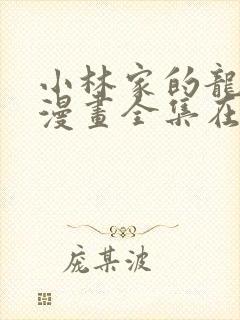 小林家的龍
漫畫全集在
庞某波